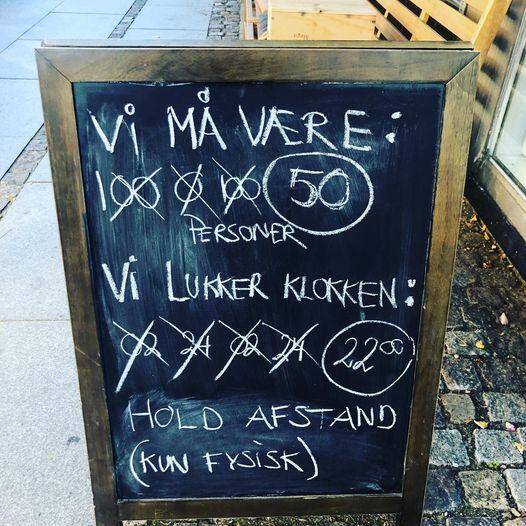 Vi MÅ VÆRE:
100 0 100 50
PERSONER
Vi LUKKER KLOKKEN:
02 24 02 24 22⁰⁰
HOLD AFSTAND
(KUN FYSISK)